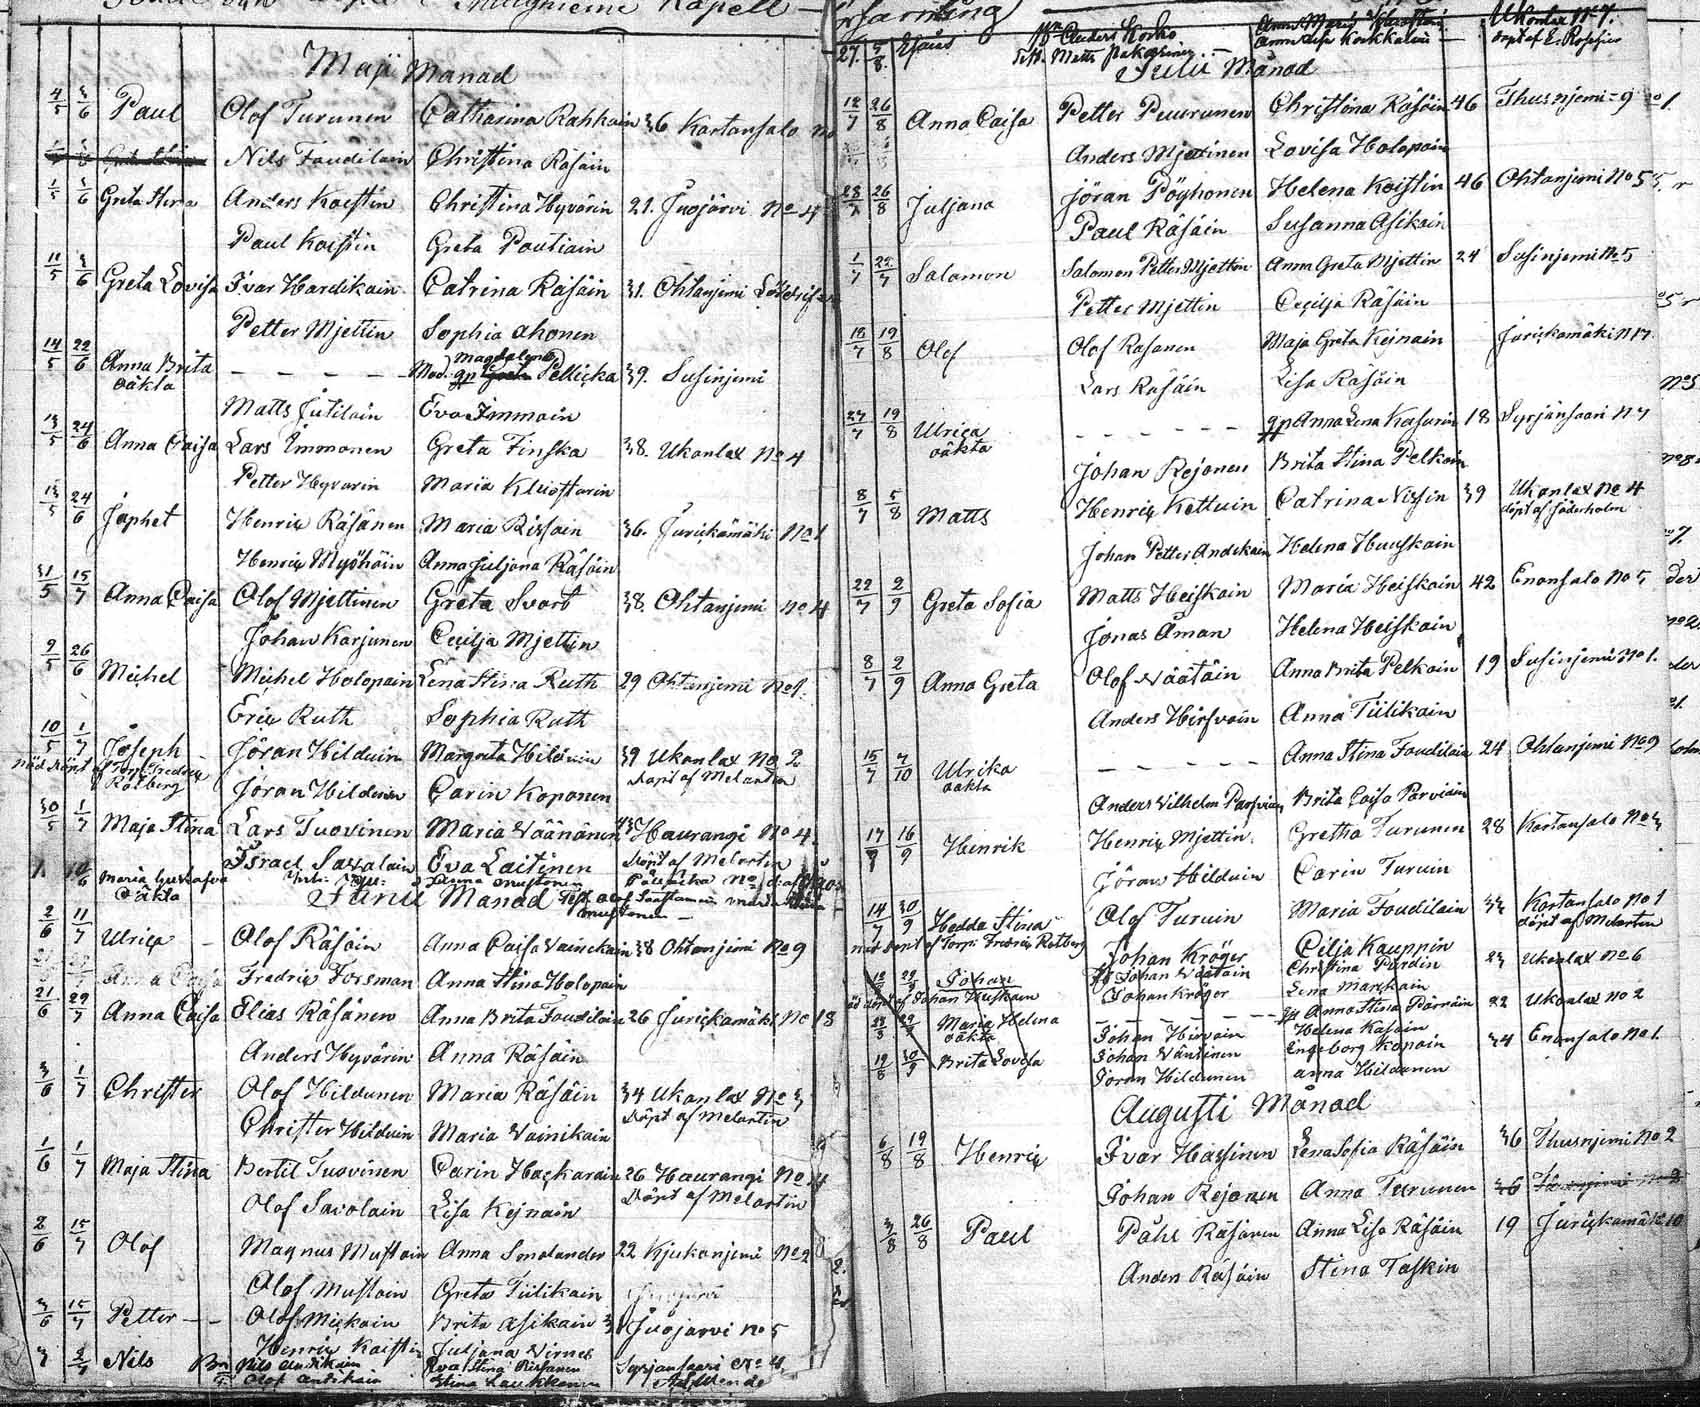 Kapell
Maji Månad
4/5 3/6 Paul Olof Turunen Catharina Rahkain 36 Kortansalo No
Nils Foudilain Christina Räsäin
1/5 3/6 Greta Stina Anders Koistin Christina Hyvärin 21. Juojärvi No 4
Paul Koistin Greta Poutiain
11/5 3/6 Greta Lovisa Ivar Hardikain Catrina Räsäin 31. Ohtanjemi
Petter Mjettin Sophia Ahonen
14/5 22/6 Anna Brita oäkta - - - - - Magdalena Pellicka 39. Susinjemi
Matts Jutilain Eva Immoin
13/5 24/6 Anna Caisa Lars Immonen Greta Finska 38. Ukonlax No 4
Petter Hyvärin Maria Kluostarin
13/5 24/6 Japhet Henric Räsänen Maria Rissain 36. Jurickämäki No 1
Henric Myöhäin Anna Juljana Räsäin
31/5 15/7 Anna Caisa Olof Mjettinen Greta Svart 38 Ohtanjemi No 4
Johan Karjunen Cecilja Mjettin
9/5 26/6 Michel Michel Holopain Lena Stina Ruth 29 Ohtanjemi No 1.
Eric Ruth Sophia Ruth
10/5 1/7 Joseph Jöran Hilduin Margreta Hilduin 39 Ukonlax No 2
nöd döpt af Torp. Fredric Rotberg Döpt af Melartin
Jöran Hilduin Carin Koponen
30/5 1/7 Maja Stina Lars Tuovinen Maria Väänänen Haurangi No 4.
Israel Savolain Eva Laitinen Döpt af Melartin
10/6 Maria Gustafva oäkta
Junii Månad
2/6 11/7 Ulrica - Olof Räsäin Anna Caisa Vainikain 38 Ohtanjemi No 9
Anna Caisa Fredric Forsman Anna Stina Holopain
21/6 29/7 Anna Caisa Elias Räsänen Anna Brita Foudilain 26 Jurickämäki No 18
Anders Hyvärin Anna Räsäin
3/6 1/7 Christer Olof Hildunen Maria Räsäin 34 Ukonlax No 3
Döpt af Melartin
Christer Hilduin Maria Vainikain
1/6 1/7 Maja Stina Bertil Tuovinen Carin Hackarain 26 Haurangi No 4
Döpt af Melartin
Olof Savolain Lisa Kejnäin
2/6 15/7 Olof Magnus Mustoin Anna Smolander 22 Kjukanjemi No 2
Olof Mustoin Greta Tiilikain
3/6 15/7 Petter - - Olof Mickain Brita Asikain Juojärvi No 5
Henric Koistin Juljana Virnes
Nils Nils Andikain Eva Stina Rissanen Syrjänsaari No 4.
Olof Andikain Stina Laukkanen
27. 5/8. Anders Korko Ukonlax No 7.
Matts Pakarinen Anna Lisa Korkkalain döpt af E. Roschier
Julii Månad
12/7 26/8 Anna Caisa Petter Puurunen Christina Räsäin 46 Thusnjemi 9
Anders Mjettinen Lovisa Holopain
23/7 26/8 Juljana Jöran Pöyhonen Helena Koistin 46 Ohtanjemi No 5
Paul Räsäin Susanna Asikain
1/7 22/7 Salamon Salomon Petter Mjettin Anna Greta Mjettin 24 Susinjemi No 5
Petter Mjettin Cecilja Räsäin
18/7 19/8 Olof Olof Rasanen Maja Greta Kejnain Jurickamäki N 17
Lars Räsäin Lisa Räsäin
27/7 19/8 Ulrica oäkta - - - - - - Anna Lena Kasurin 18 Syrjänsaari N 7
Johan Rejonen Brita Stina Pelkoin
8/7 5/8 Matts Henric Kettuin Catrina Nissin 39 Ukonlax No 4
döpt af Söderholm
Johan Petter Andikain Helena Huuskain
22/7 2/9 Greta Sofia Matts Heiskain Maria Heiskain 42 Enonsalo No 5
Jonas Åman Helena Heiskain
8/7 2/9 Anna Greta Olof Väätäin Anna Brita Pelkoin 19 Susinjemi No 1.
Anders Hirsvoin Anna Tiilikain
15/7 7/10 Ulrika oäkta - - - - - Anna Stina Foudilain 24 Ohtanjemi No 9
Anders Vilhelm Parviain Brita Caisa Parviain
17/7 16/9 Henrik Henric Mjettin Gretha Turunen 28 Kortansalo No 3
Jöran Hilduin Carin Turuin
14/7 30/9 Hedda Stina Olof Turuin Maria Foudilain Kortansalo No 1
nöd döpt af Torp: Fredric Rotberg döpt af Melartin
Johan Kröger Cilja Kauppin
Johan Johan Väätäin Christina Pardin 23 Ukonlax No 6
Johan Kröger Lena Marckain
Maria Helena oäkta - - - - - - Anna Stina Pärnäin 22 Ukonlax No 2
Johan Hirvoin Helena Kasain
Brita Lovisa Johan Väntinen Engeborg Kopoin 34 Enonsalo No 1.
Jöran Hildunen Anna Hildunen
Augusti Månad
6/8 19/8 Henric Ivar Hassinen Lena Sofia Räsäin 36 Thusnjemi No 2
Johan Rejonen Anna Turunen
3/8 26/8 Paul Påhl Räsänen Anna Lisa Räsäin 19 Jurickamäki 10
Anders Räsäin Stina Taskin